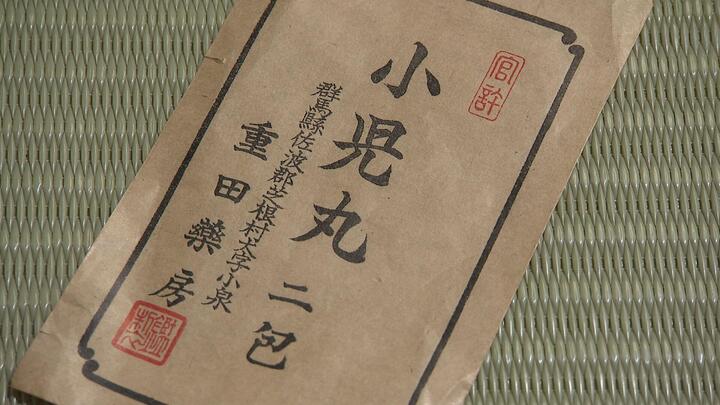 官許
小児丸
二包
群馬縣佐波郡芝根村大字小泉
重田藥房